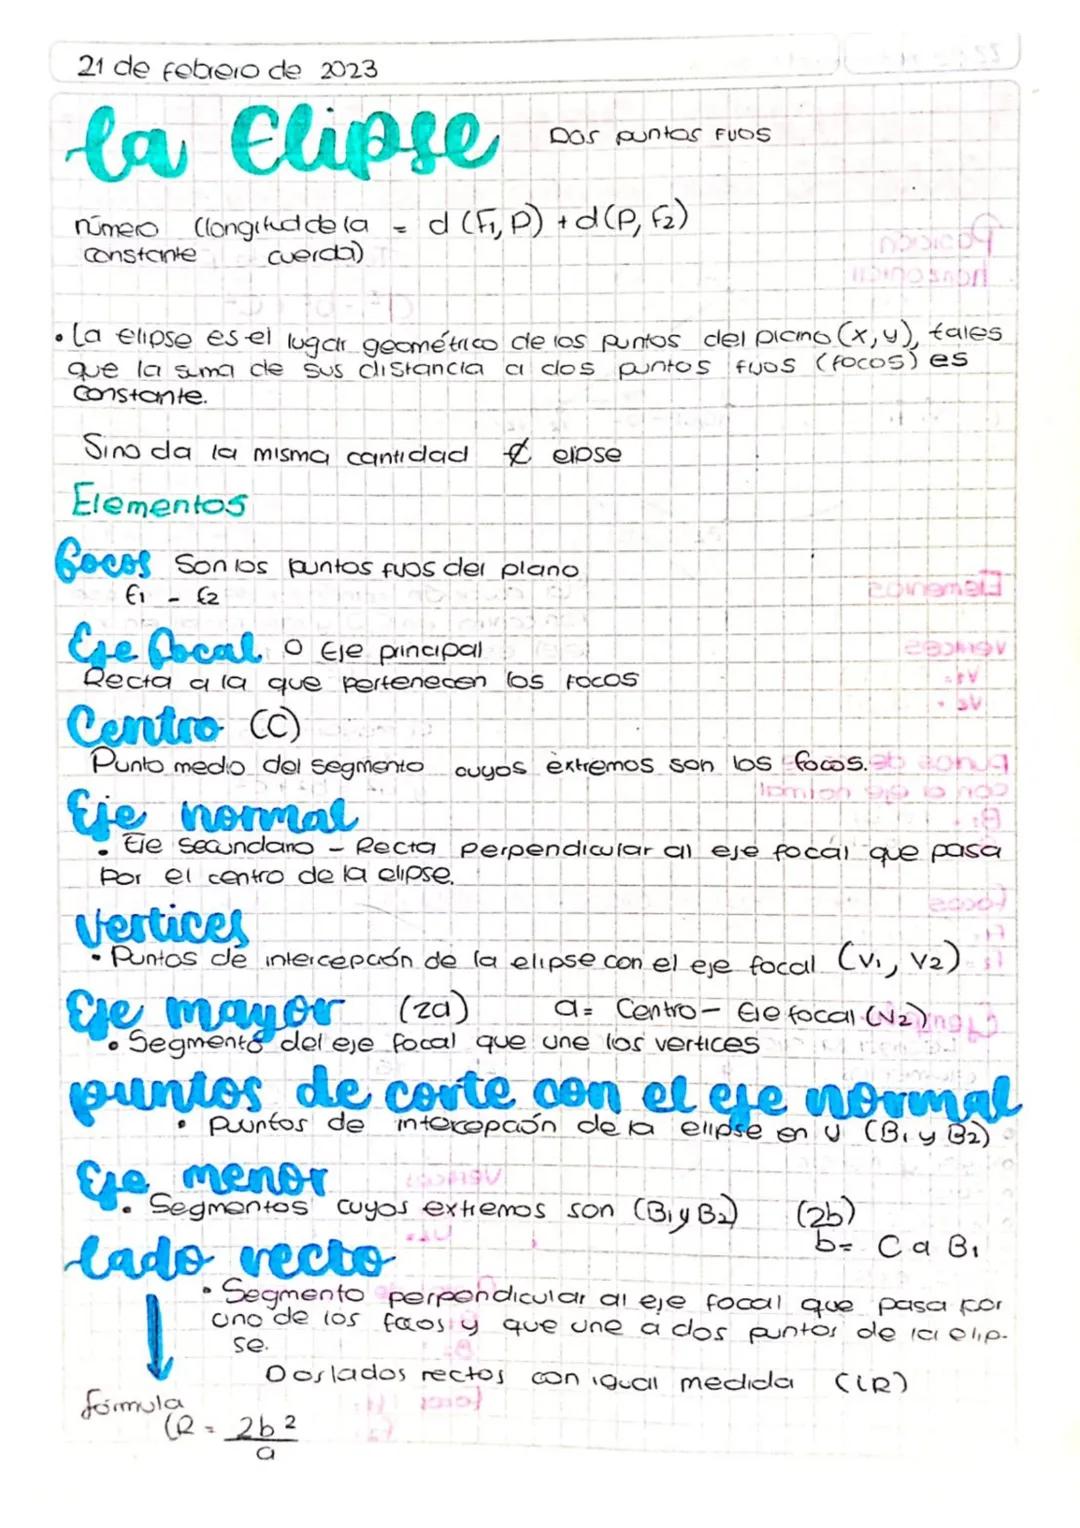 21 de febrero de 2023
La Elipse Dos puntos fijos
número (longitud de la = d (F1, P) + d (P, F2)
constante cuerda)
• La elipse es el lugar geométrico de los puntos del plano (x, y), tales
que la suma de sus distancia a dos puntos fijos (focos) es
constante.
Si no da la misma cantidad ⊄ elipse
Elementos
focos Son los puntos fijos del plano
F1 - F2
Eje focal o Eje principal
Recta a la que pertenecen los focos
Centro (C)
Punto medio del segmento cuyos extremos son los focos.
Eje normal
• Eje secundario - Recta perpendicular al eje focal que pasa
por el centro de la elipse.
Vertices
• Puntos de intercepción de la elipse con el eje focal (V1, V2)
Eje mayor (2a) a= Centro - Eje focal (V2)
• Segmento del eje focal que une los vertices
puntos de corte con el eje normal
• Puuntos de intercepción de la elipse en y (B1 y B2)
Eje menor
• Segmentos cuyos extremos son (B1 y B2) (2b)
b= C a B1
Lado recto
• Segmento perpendicular al eje focal que pasa por
uno de los focos y que une a dos puntos de la elip-
se.
Dos lados rectos con igual medida (LR)
fórmula
LR = 2b²
a